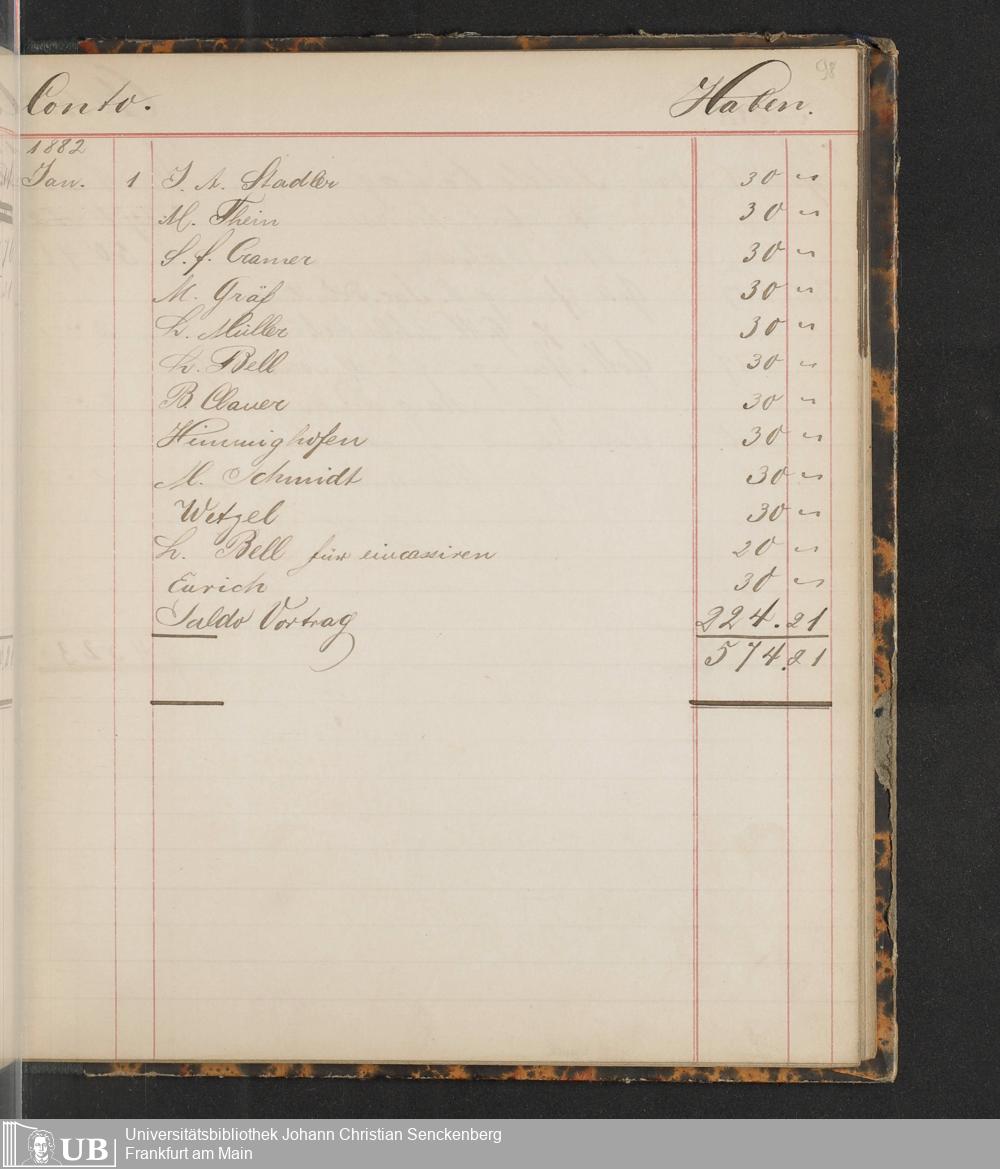 98
Conto. Haben.
1882
Jan. 1 J. A. Stadler 30 "
M. Thein 30 "
S. f. Cramer 30 "
M. Gräf 30 "
L. Müller 30 "
L. Bell 30 "
B. Clauer 30 "
Himmighofen 30 "
M. Schmidt 30 "
Wetzel 30 "
L. Bell für eincassiren 20 "
Eurich 30 "
Saldo Vortrag 224.21
574.21
UB Universitätsbibliothek Johann Christian Senckenberg
Frankfurt am Main